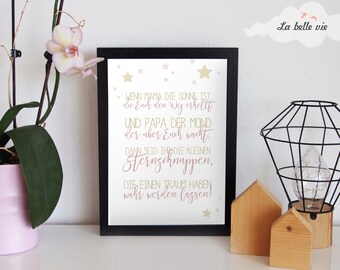 La belle vie
WENN MAMA DIE SONNE IST,
die Euch den Weg erhellt
UND PAPA DER MOND
der über Euch wacht,
DANN SEID IHR DIE KLEINEN
Sternschnuppen,
DIE EINEN TRAUM HABEN
wahr werden lassen!